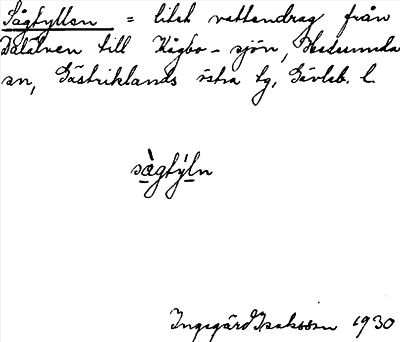 Sågfyllan = litet vattendrag från
Dalälven till Kågbo-sjön, Hedesunda
sn, Gästriklands östra tg, Gävleb. l.
sågfýln
Ingegärd Isaksson 1930